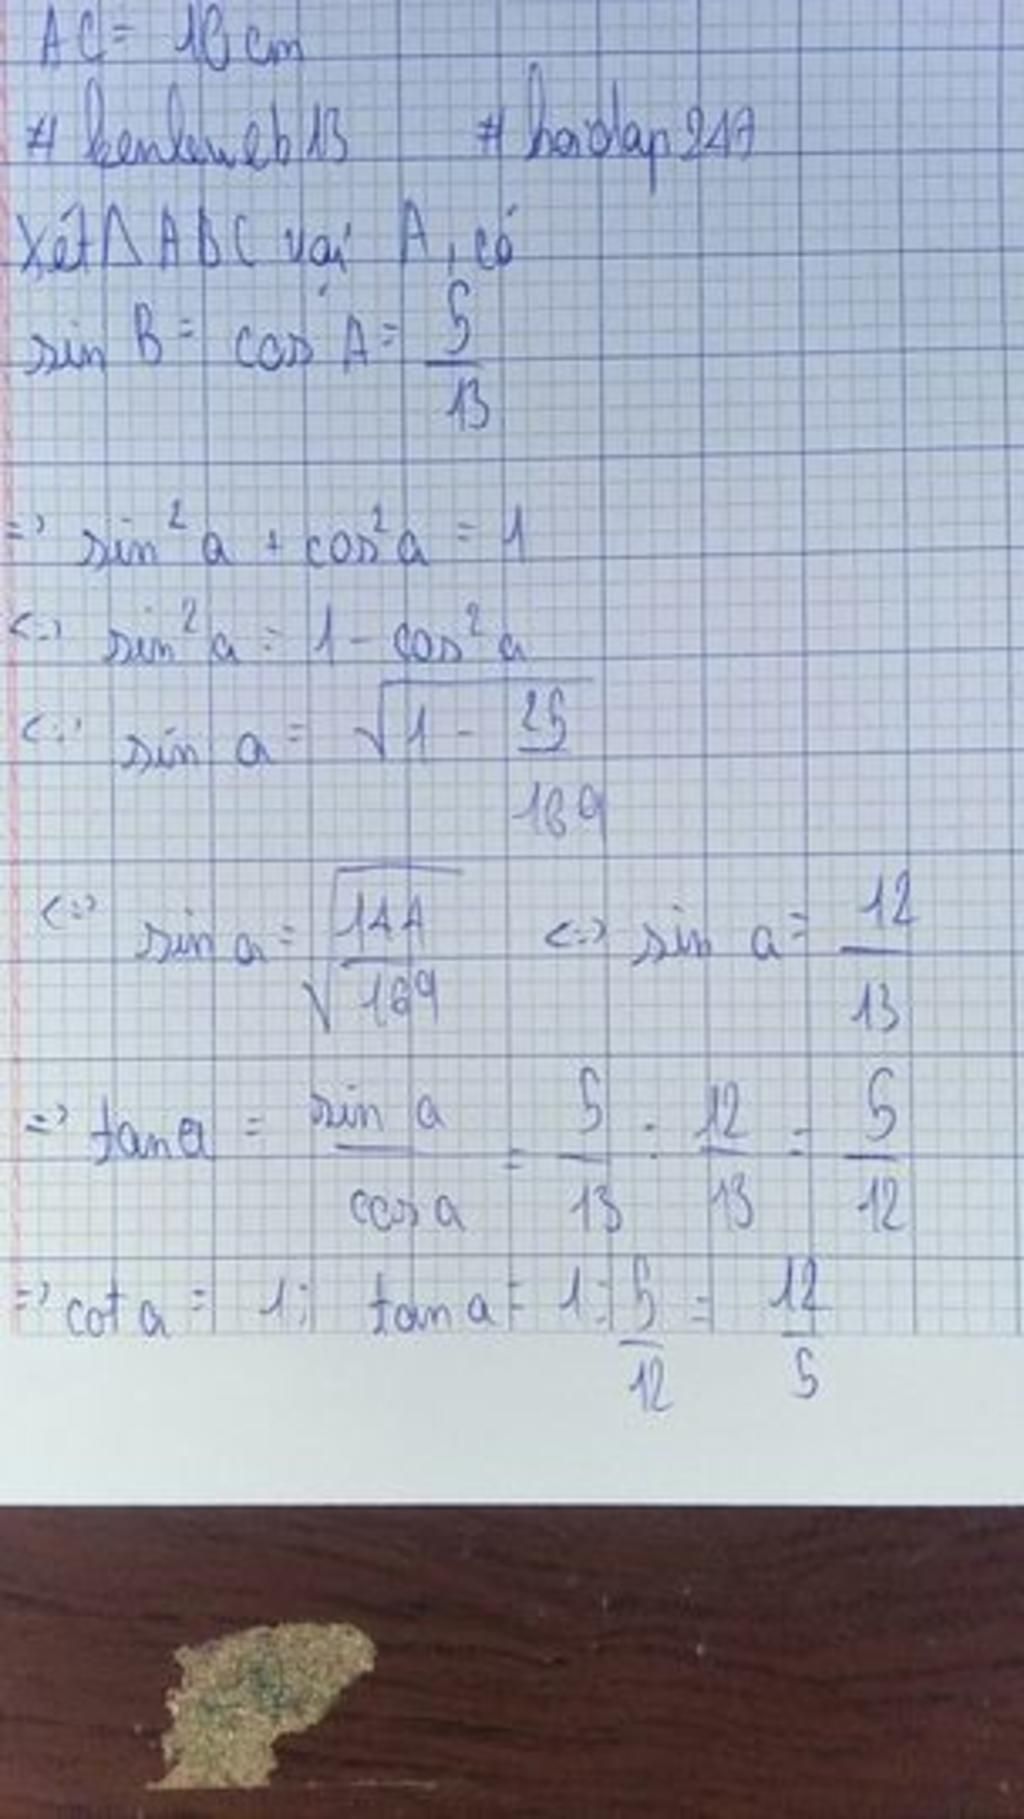 AC = 16 cm
# kenlaweb13 # hoidap247
Xét Δ ABC với A, có
sin B = cos A = 5/13
=> sin² a + cos² a = 1
<=> sin² a = 1 - cos² a
<=> sin a = √(1 - 25/169)
<=> sin a = √(144/169) <=> sin a = 12/13
=> tan a = sin a / cos a = 5/13 : 12/13 = 5/12
=> cot a = 1 : tan a = 1 : 5/12 = 12/5